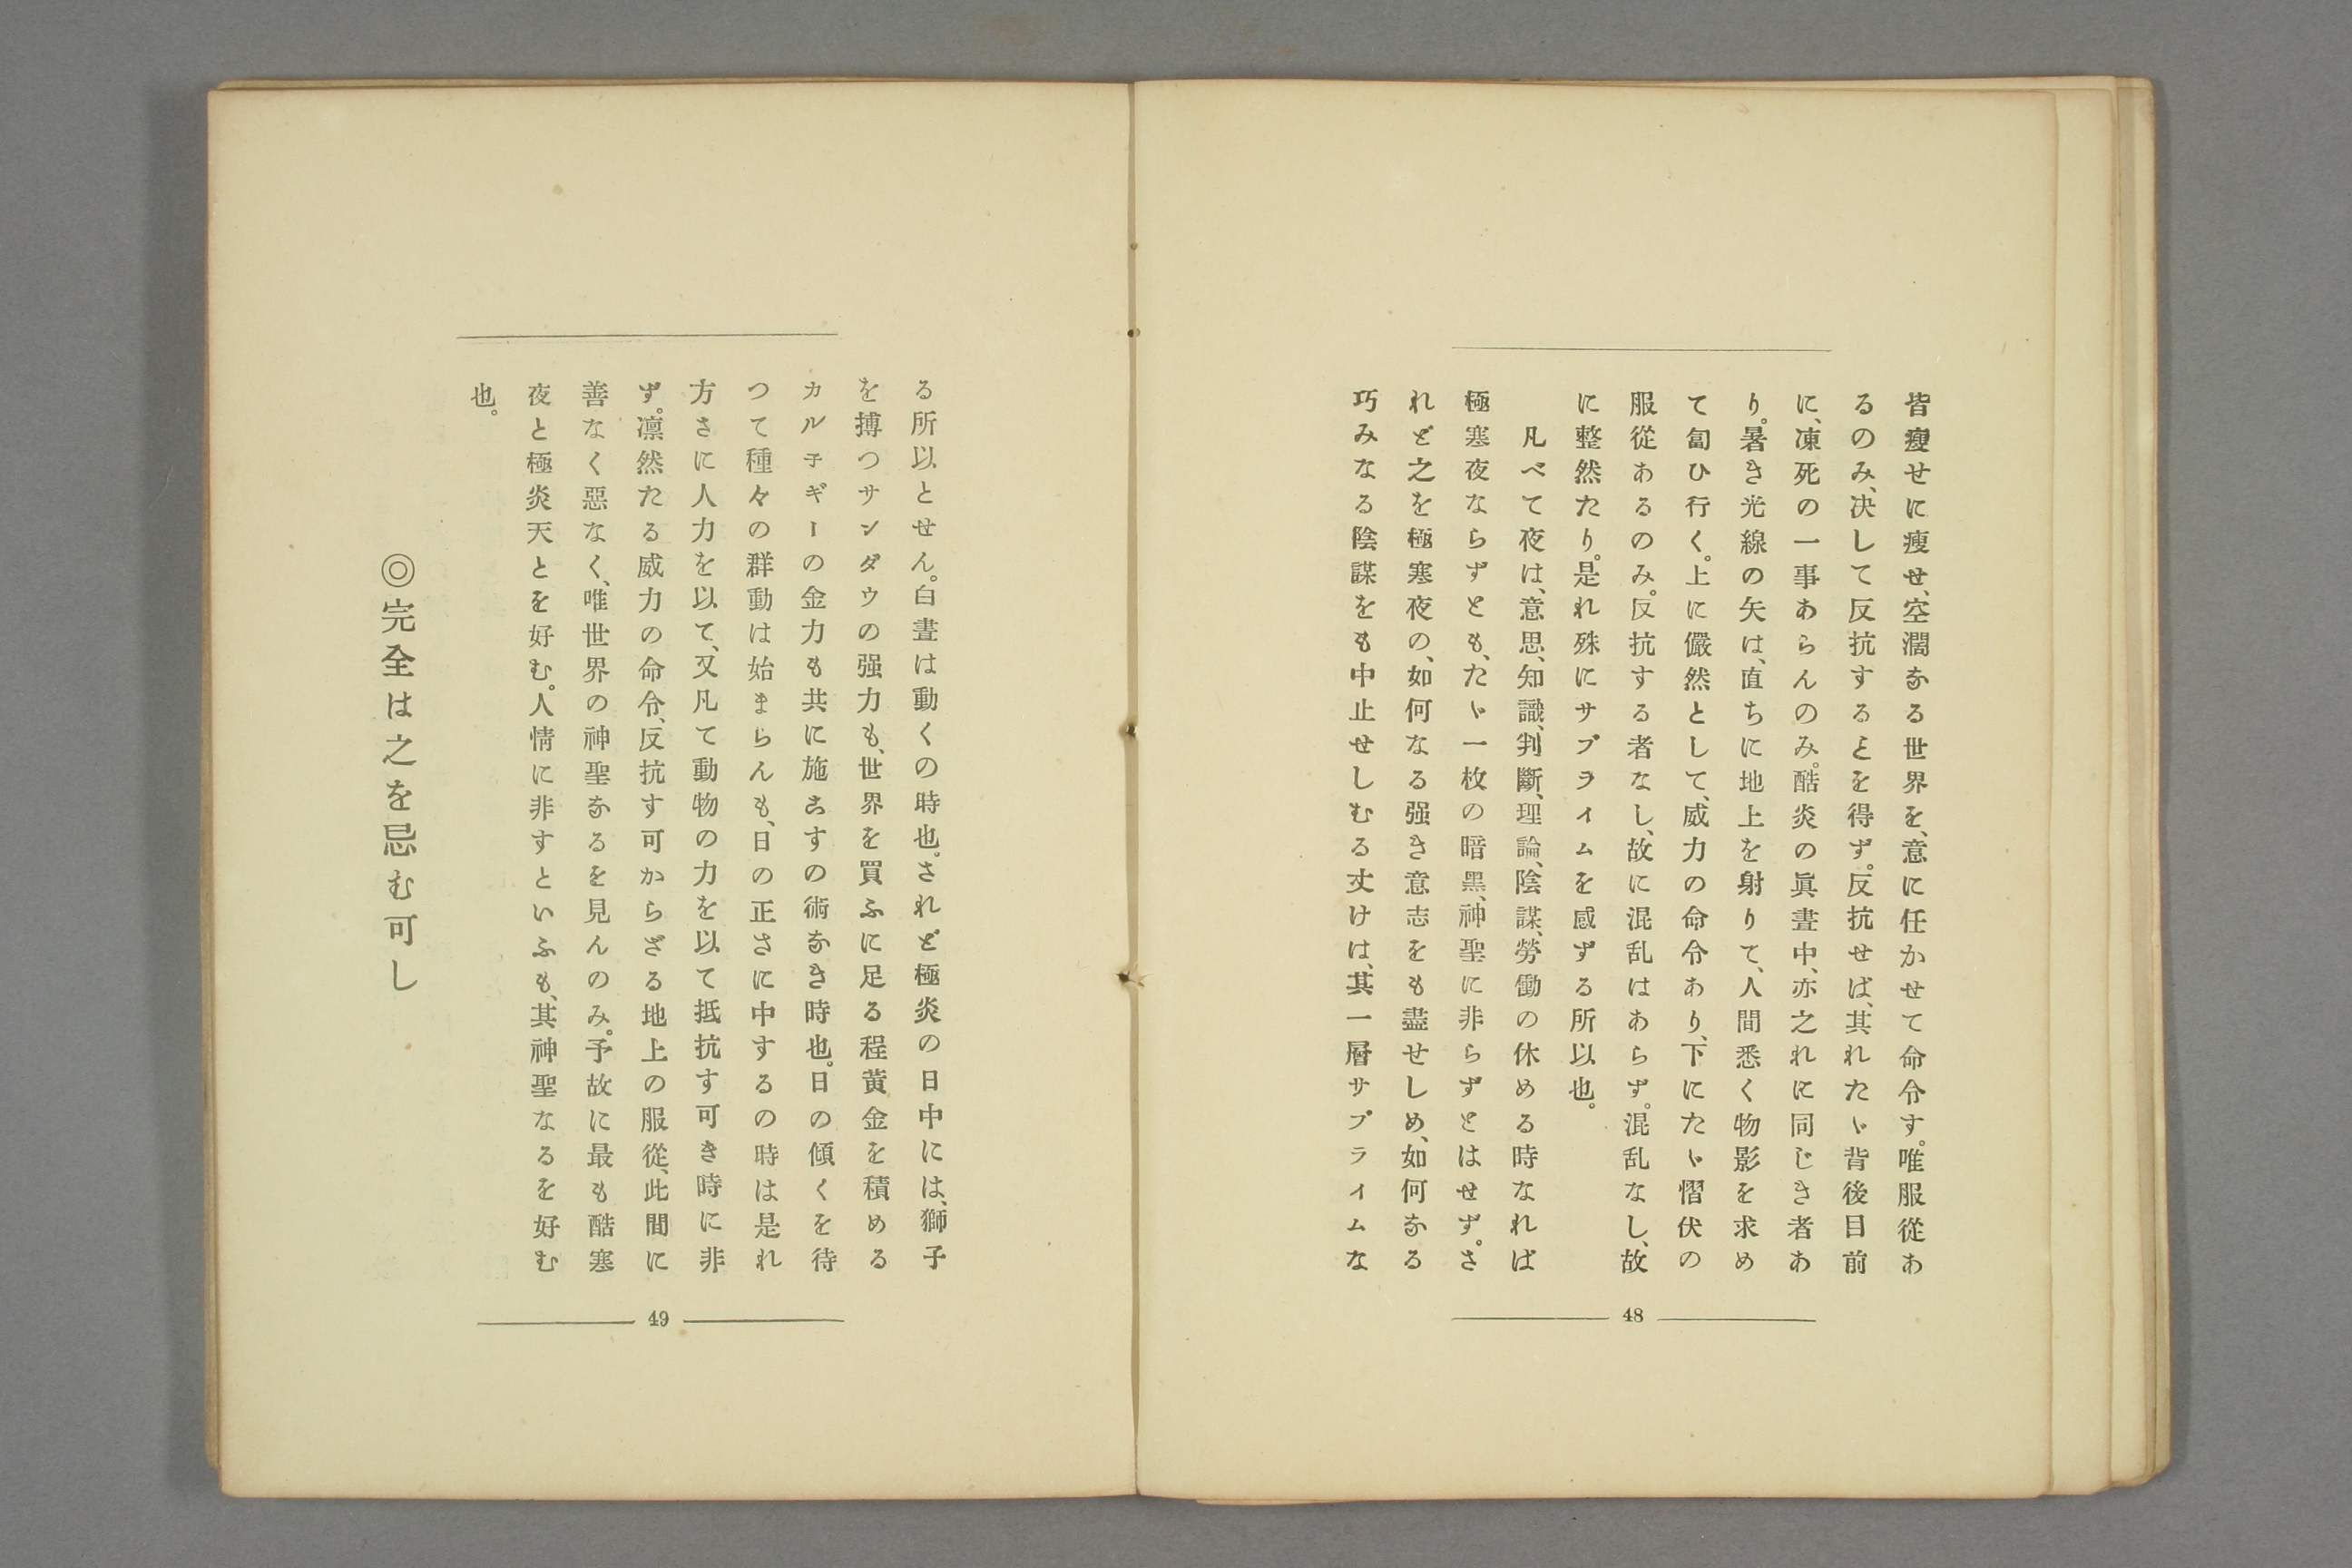 皆瘦せに瘦せ、空濶なる世界を、意に任かせて命令す。唯服從あ
るのみ、决して反抗するとを得ず。反抗せば、其れたゞ背後目前
に、凍死の一事あらんのみ。酷炎の眞晝中、亦之れに同じき者あ
り。暑き光線の矢は、直ちに地上を射りて、人間悉く物影を求め
て匐ひ行く。上に儼然として、威力の命令あり、下にたゞ慴伏の
服從あるのみ。反抗する者なし、故に混乱はあらず。混乱なし、故
に整然たり。是れ殊にサブライムを感ずる所以也。
凡べて夜は、意思、知識、判斷、理論、陰謀、勞働の休める時なれば
極寒夜ならずとも、たゞ一枚の暗黑、神聖に非らずとはせず。さ
れど之を極寒夜の、如何なる强き意志をも盡せしめ、如何なる
巧みなる陰謀をも中止せしむる丈けは、其一層サブライムな
48
る所以とせん。白晝は動くの時也。されど極炎の日中には、獅子
を搏つサンダウの强力も、世界を買ふに足る程黄金を積める
カル子ギーの金力も共に施こすの術なき時也。日の傾くを待
つて種々の群動は始まらんも、日の正さに中するの時は是れ
方さに人力を以て、又凡て動物の力を以て抵抗す可き時に非
ず。凛然たる威力の命令、反抗す可からざる地上の服從、此間に
善なく惡なく、唯世界の神聖なるを見んのみ。予故に最も酷寒
夜と極炎天とを好む。人情に非すといふも、其神聖なるを好む
也。
◎完全は之を忌む可し
49